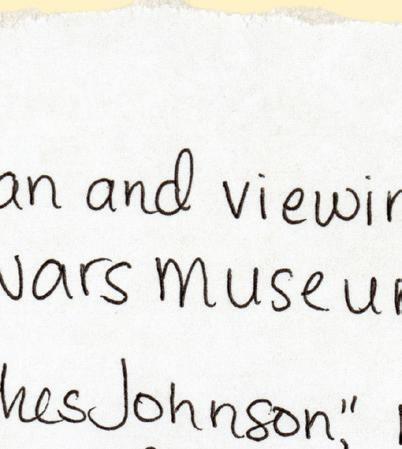 an and viewin
wars museum
kesJohnson",